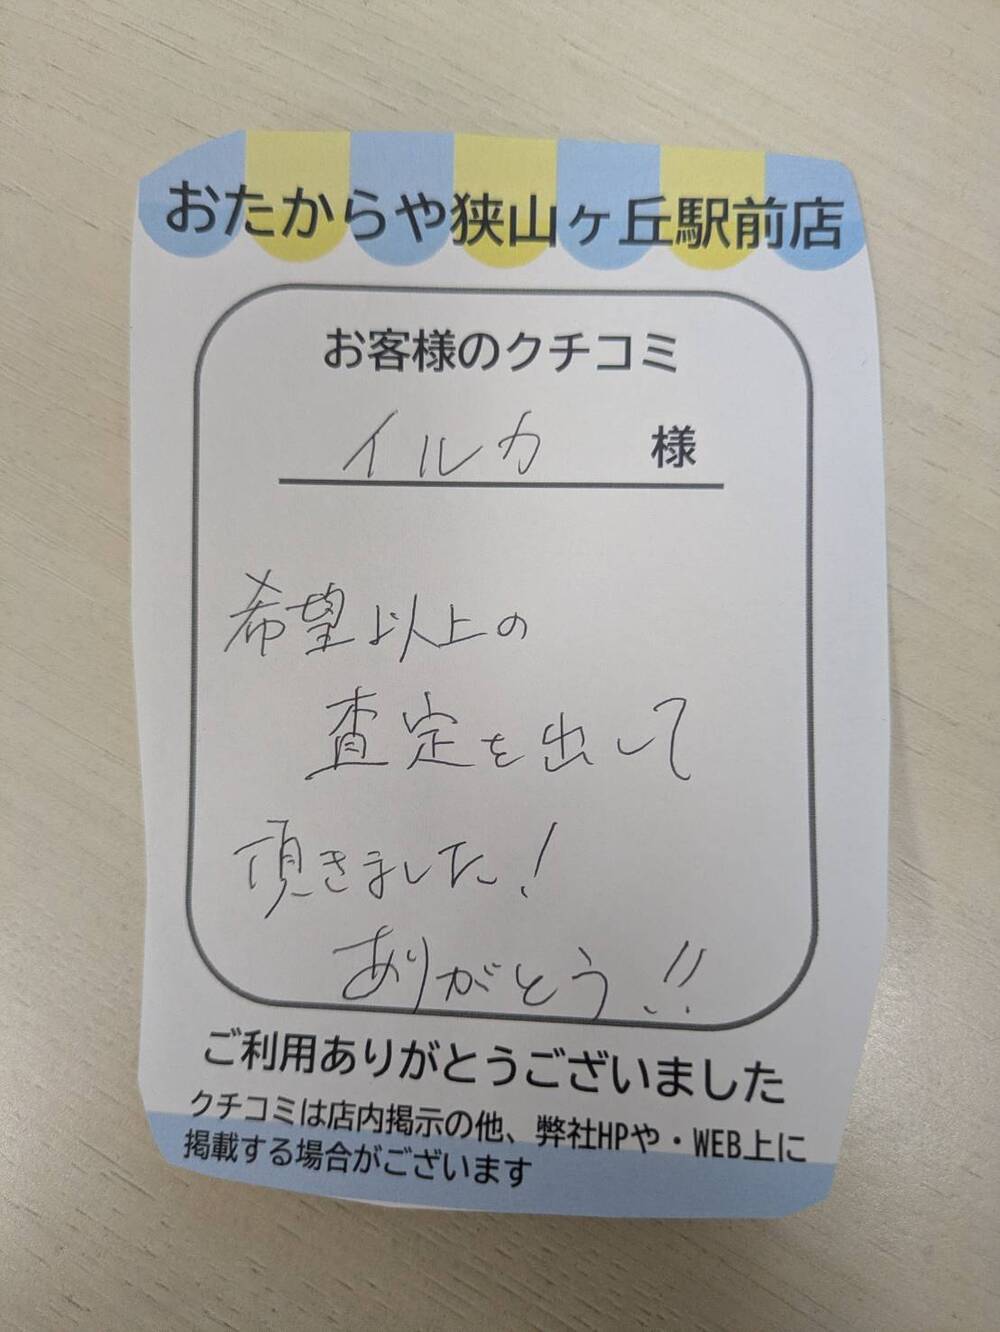 おたからや狭山ヶ丘駅前店
お客様のクチコミ
イルカ 様
希望以上の
査定を出して
頂きました!
ありがとう!!
ご利用ありがとうございました
クチコミは店内掲示の他、弊社HPや・WEB上に
掲載する場合がございます